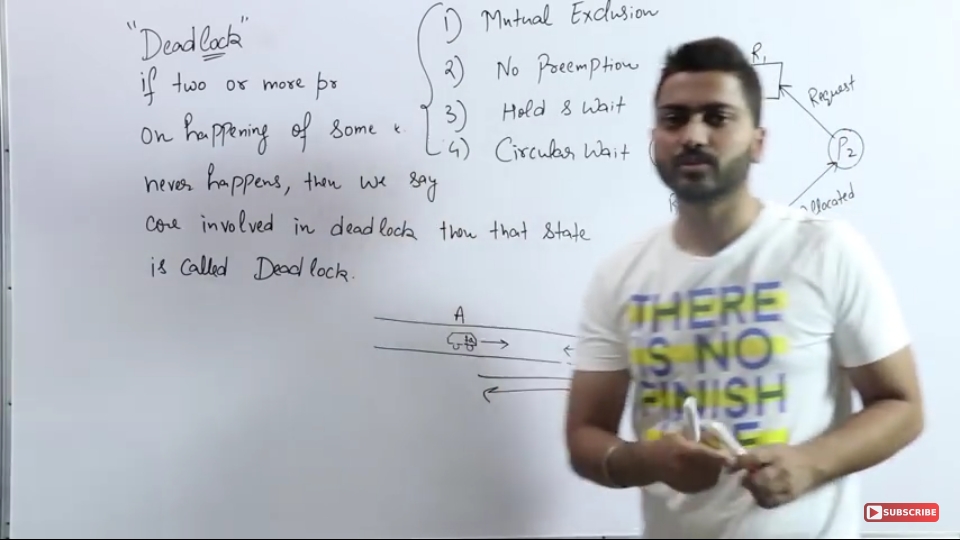 "Deadlock"
if two or more pr
on happening of some
never happens, then we say
are involved in deadlock then that state
is called Deadlock.
1) Mutual Exclusion
2) No Preemption
3) Hold & Wait
4) Circular Wait
R1
Request
P2
allocated
A
THERE
IS NO
FINISH
SUBSCRIBE